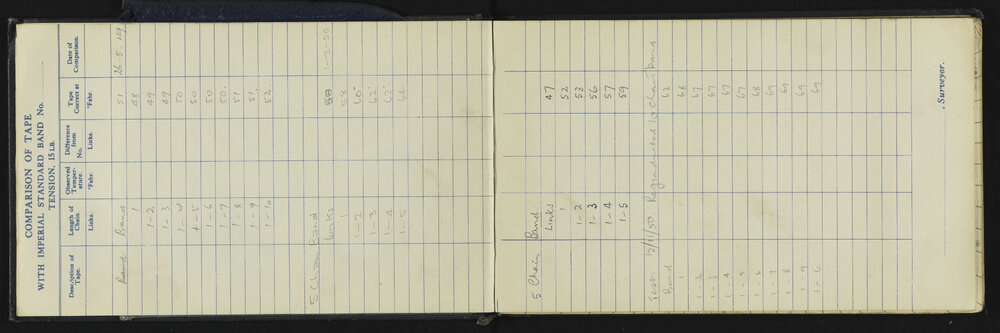 COMPARISON OF TAPE
WITH IMPERIAL STANDARD BAND No.
TENSION, 15 LB.
Description of Tape. Length of Chain. Links. Observed Temperature. °Fahr. Difference from No. Links. Tape Correct at °Fahr. Date of Comparison.
Band Band 51 26.5.49
1 48
1-2 49
1-3 49
1-4 50
1-5 50
1-6 50
1-7 50
1-8 51
1-9 51
1-10 52
5 Chain Band
Links 1-3-50
1 58
1-2 60°
1-3 62°
1-4 62°
1-5 64
5 Chain Band
Links 47
1 52
1-2 53
1-3 56
1-4 57
1-5 59
Test 13/11/50. Regraduated 10 chain band
Band 62
1 68
1-2 67
1-3 67
1-4 67
1-5 67
1-6 68
1-7 69
1-8 69
1-9 69
69
, Surveyor.